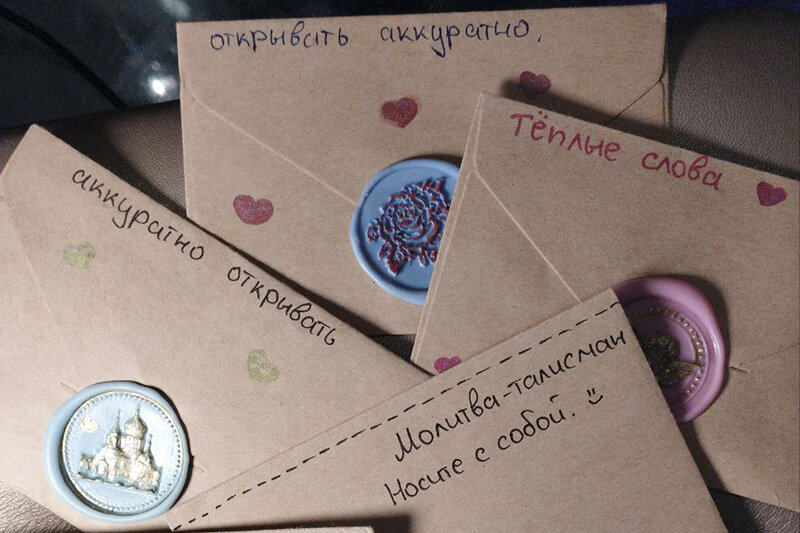 открывать аккуратно.
Тёплые слова
аккуратно открывать
Молитва-талисман
Носите с собой. :)